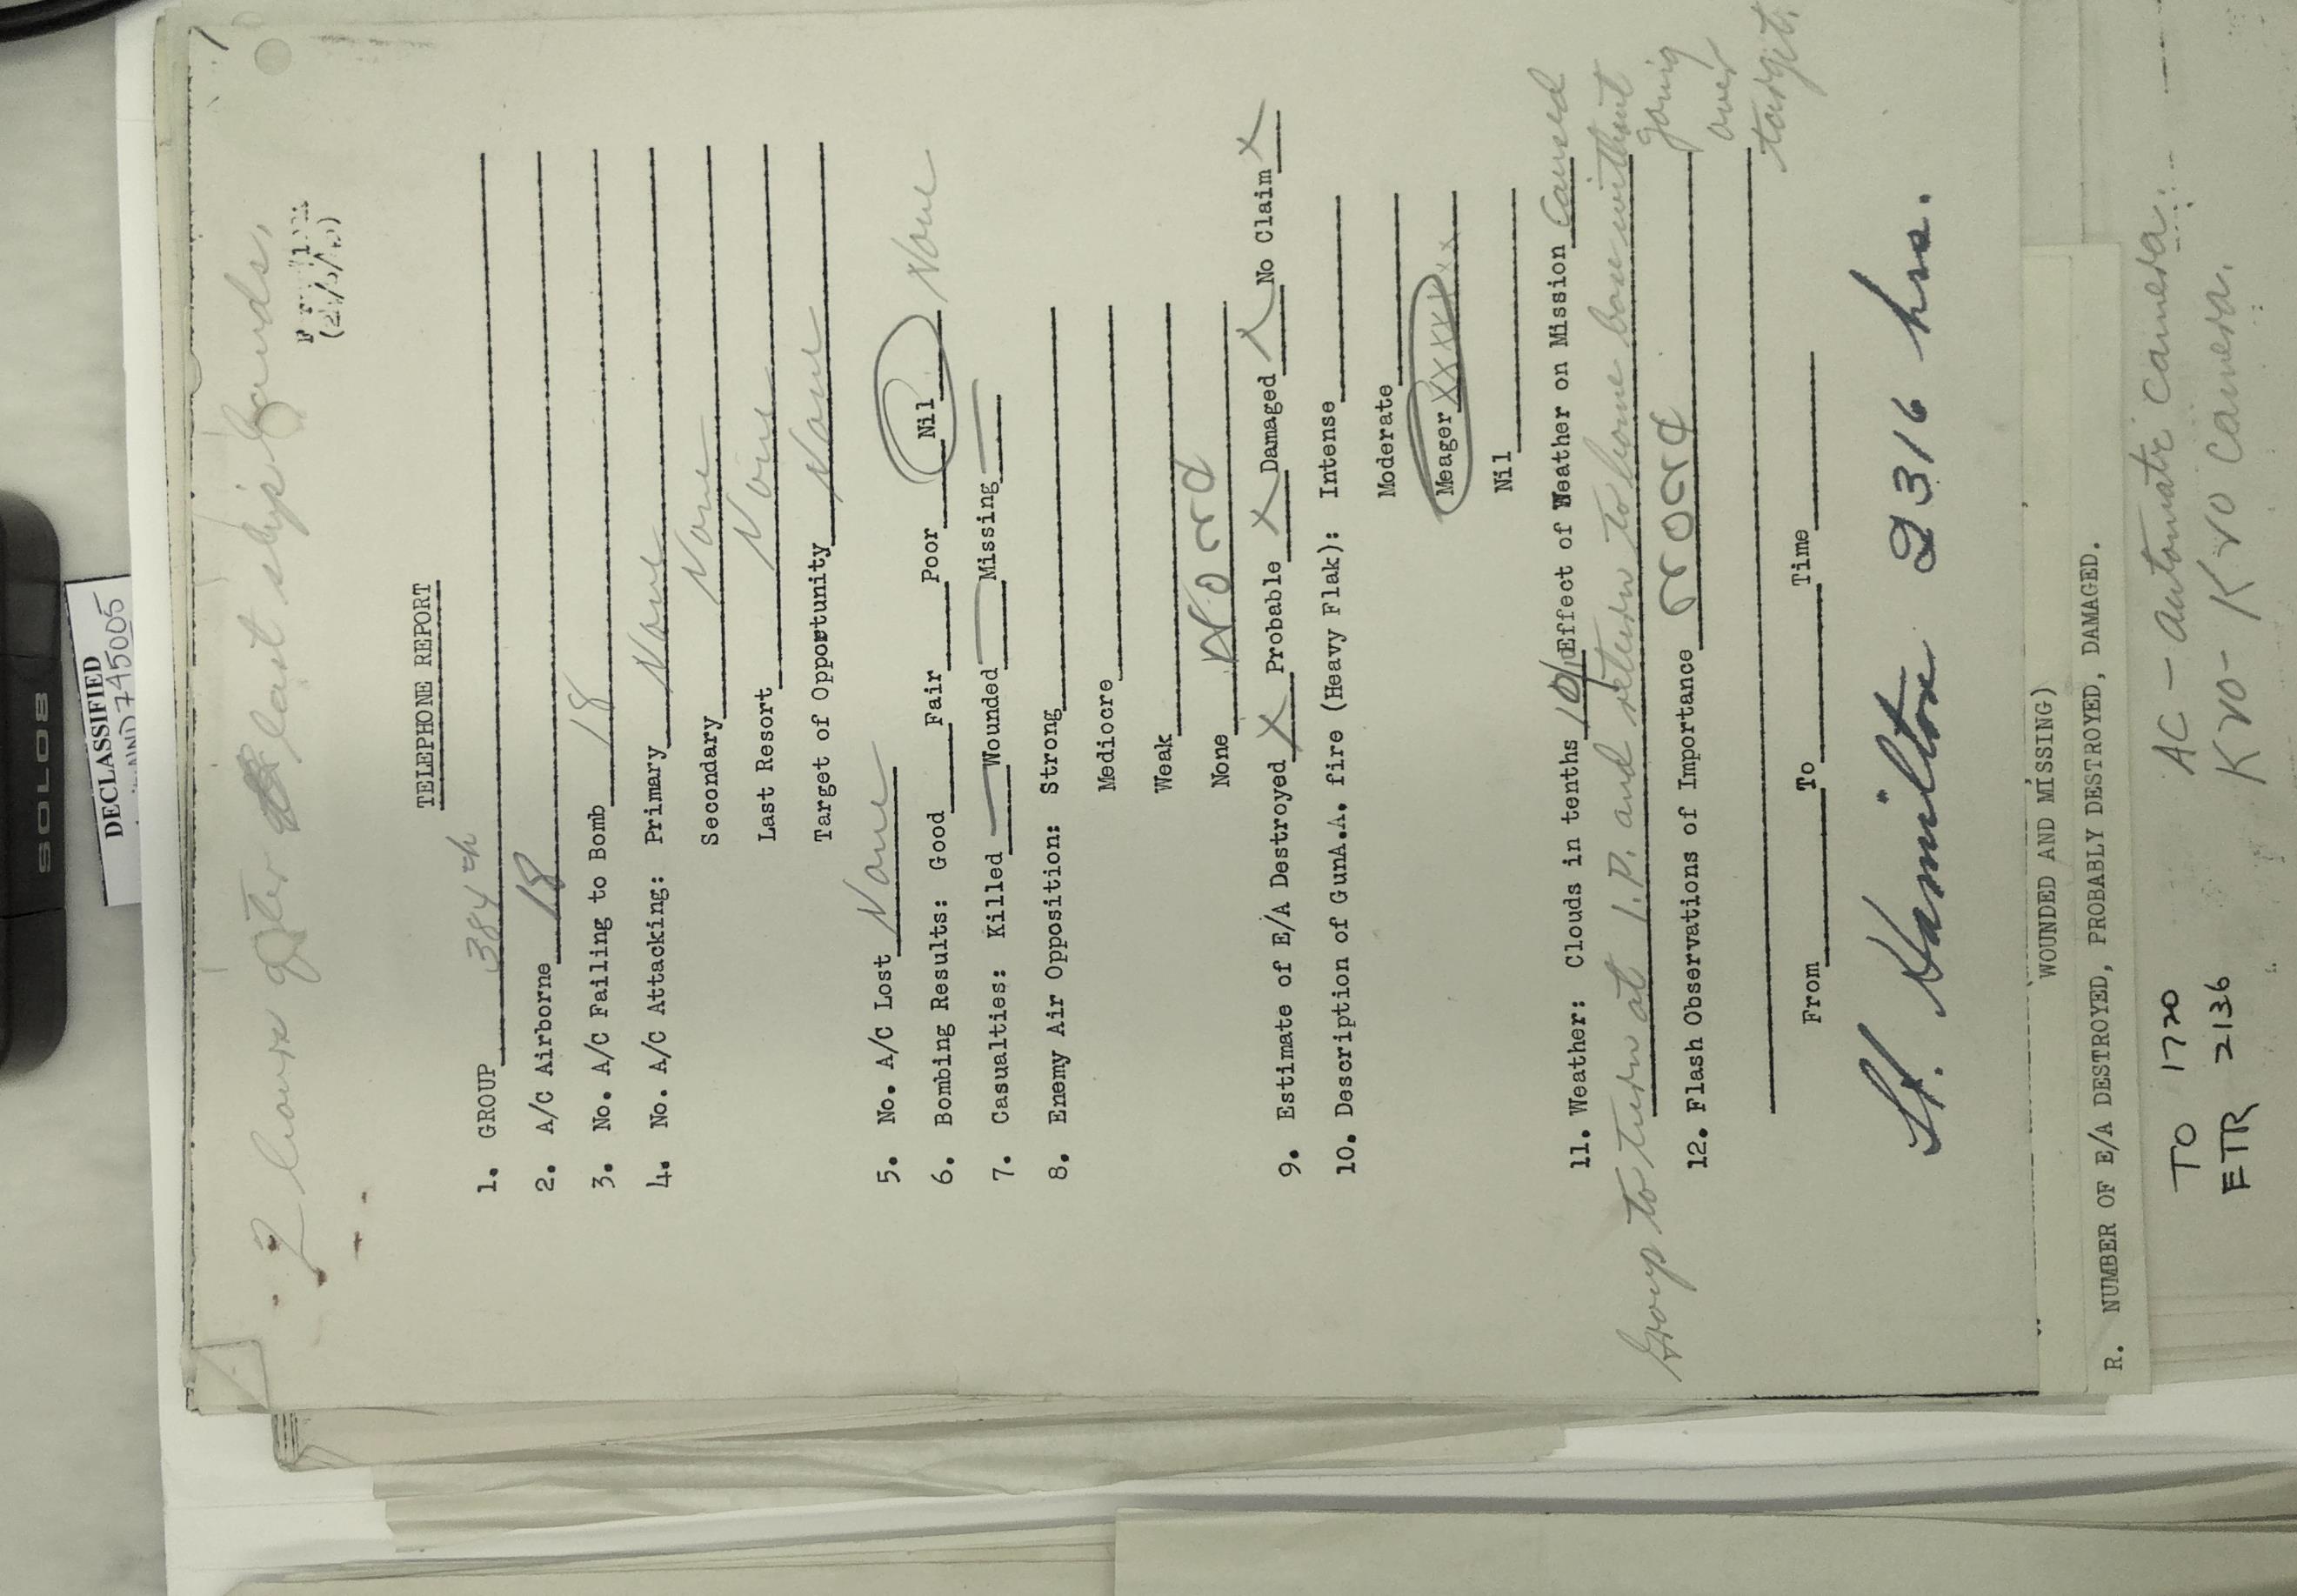 SOLO8
DECLASSIFIED
NND 745005
2 hours after last ship lands.
TELEPHONE REPORT
1. GROUP 384th
2. A/C Airborne 18
3. No. A/C Failing to Bomb 18
4. No. A/C Attacking: Primary None
Secondary None
Last Resort None
Target of Opportunity None
5. No. A/C Lost None
6. Bombing Results: Good Fair Poor Nil None
7. Casualties: Killed — Wounded — Missing —
8. Enemy Air Opposition: Strong
Mediocre
Weak
None None
9. Estimate of E/A Destroyed X Probable X Damaged X No Claim X
10. Description of GunA.A. fire (Heavy Flak): Intense
Moderate
Meager XXXXXXX
Nil
11. Weather: Clouds in tenths 10/ Effect of Weather on Mission Caused
Group to turn at I.P. and return to home base without going over target.
12. Flash Observations of Importance none
From To Time
Lt. Hamilton 2316 hrs.
WOUNDED AND MISSING)
R. NUMBER OF E/A DESTROYED, PROBABLY DESTROYED, DAMAGED.
TO 1720 AC - automatic camera.
ETR 2136 K20 - K20 camera.